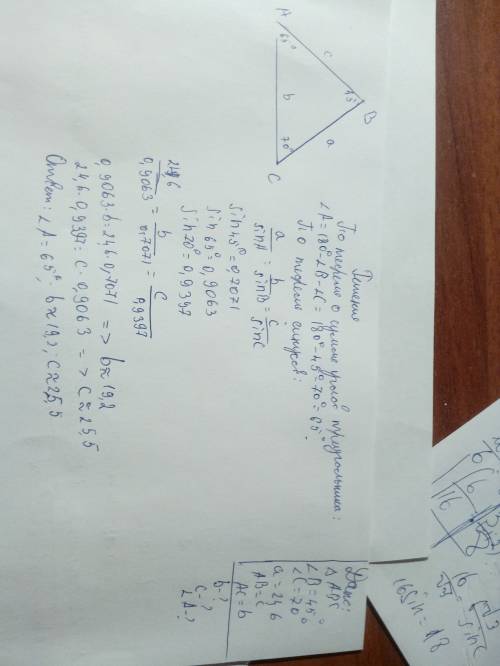 Дано:
△ ABC
∠B=45°
∠C=70°
a=24,6
AB=c
AC=b
b-?
c-?
∠A-?
Решение
По теореме о сумме углов треугольника:
∠A=180°-∠B-∠C=180°-45°-70°=65°
По теореме синусов:
a/sinA = b/sinB = c/sinC
sin45°=0,7071
sin65°=0,9063
sin70°=0,9397
24,6/0,9063 = b/0,7071 = c/0,9397
0,9063·b=24,6·0,7071 => b≈19,2
24,6·0,9397=c·0,9063 => c≈25,5
Ответ: ∠A=65°; b≈19,2; c≈25,5
A
65°
c
45°
B
b
a
70°
C
16